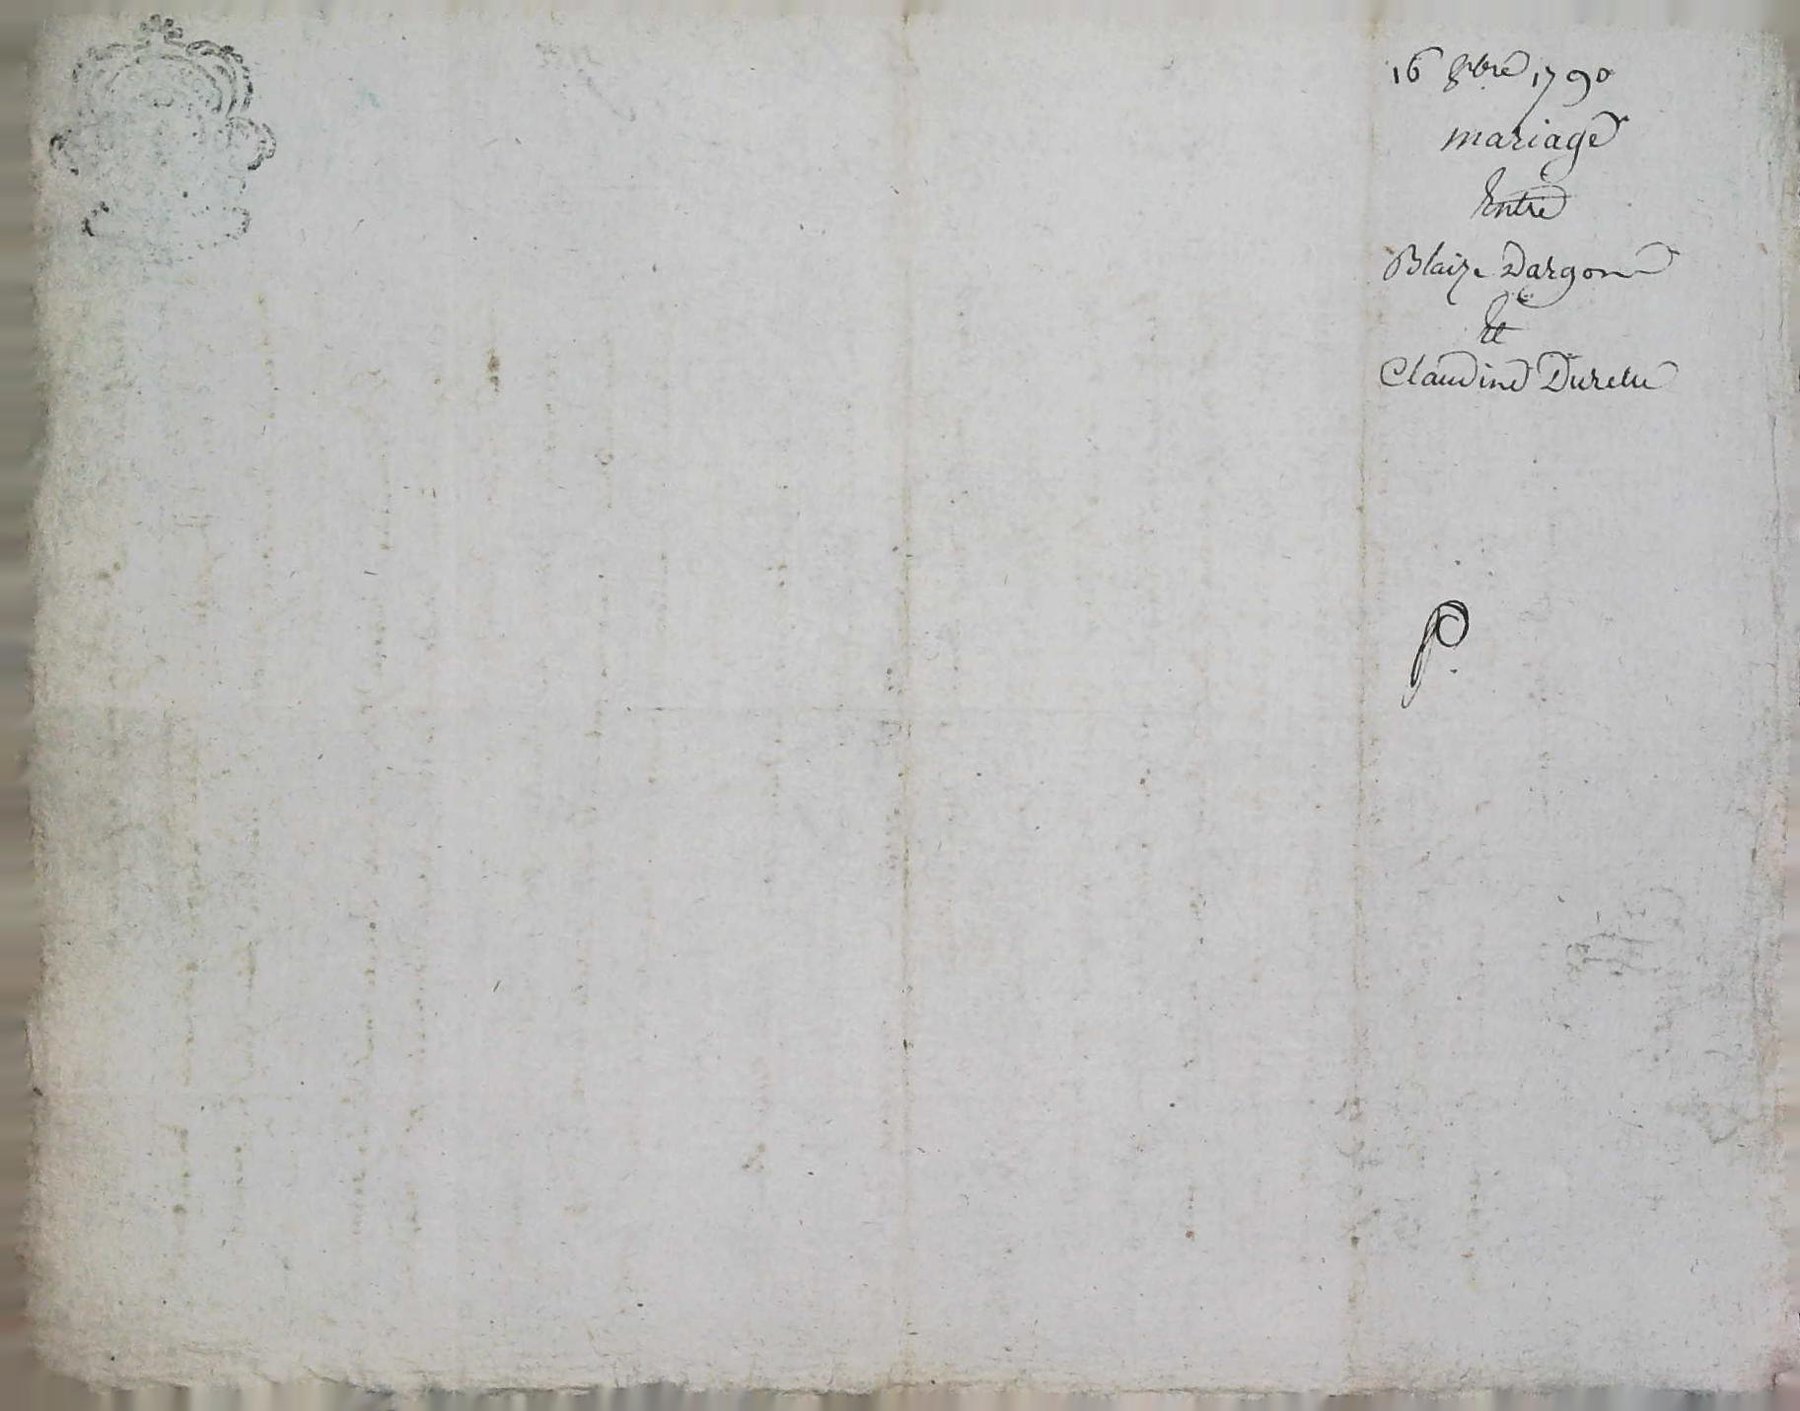 16 8bre 1790
mariage
Entre
Blaize Dargon
Et
Claudine Duretu
P.